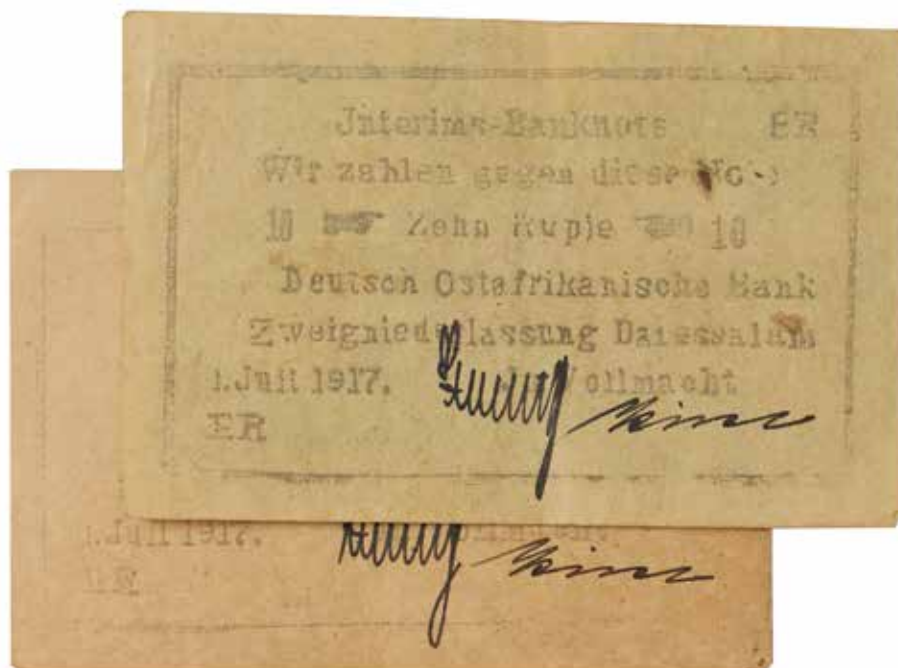 Interims-Banknote ER
Wir zahlen gegen diese Note
10 Zehn Rupie 10
Deutsch Ostafrikanische Bank
Zweigniederlassung Daressalam
1. Juli 1917. In Vollmacht
ER
1. Juli 1917. Vollmacht